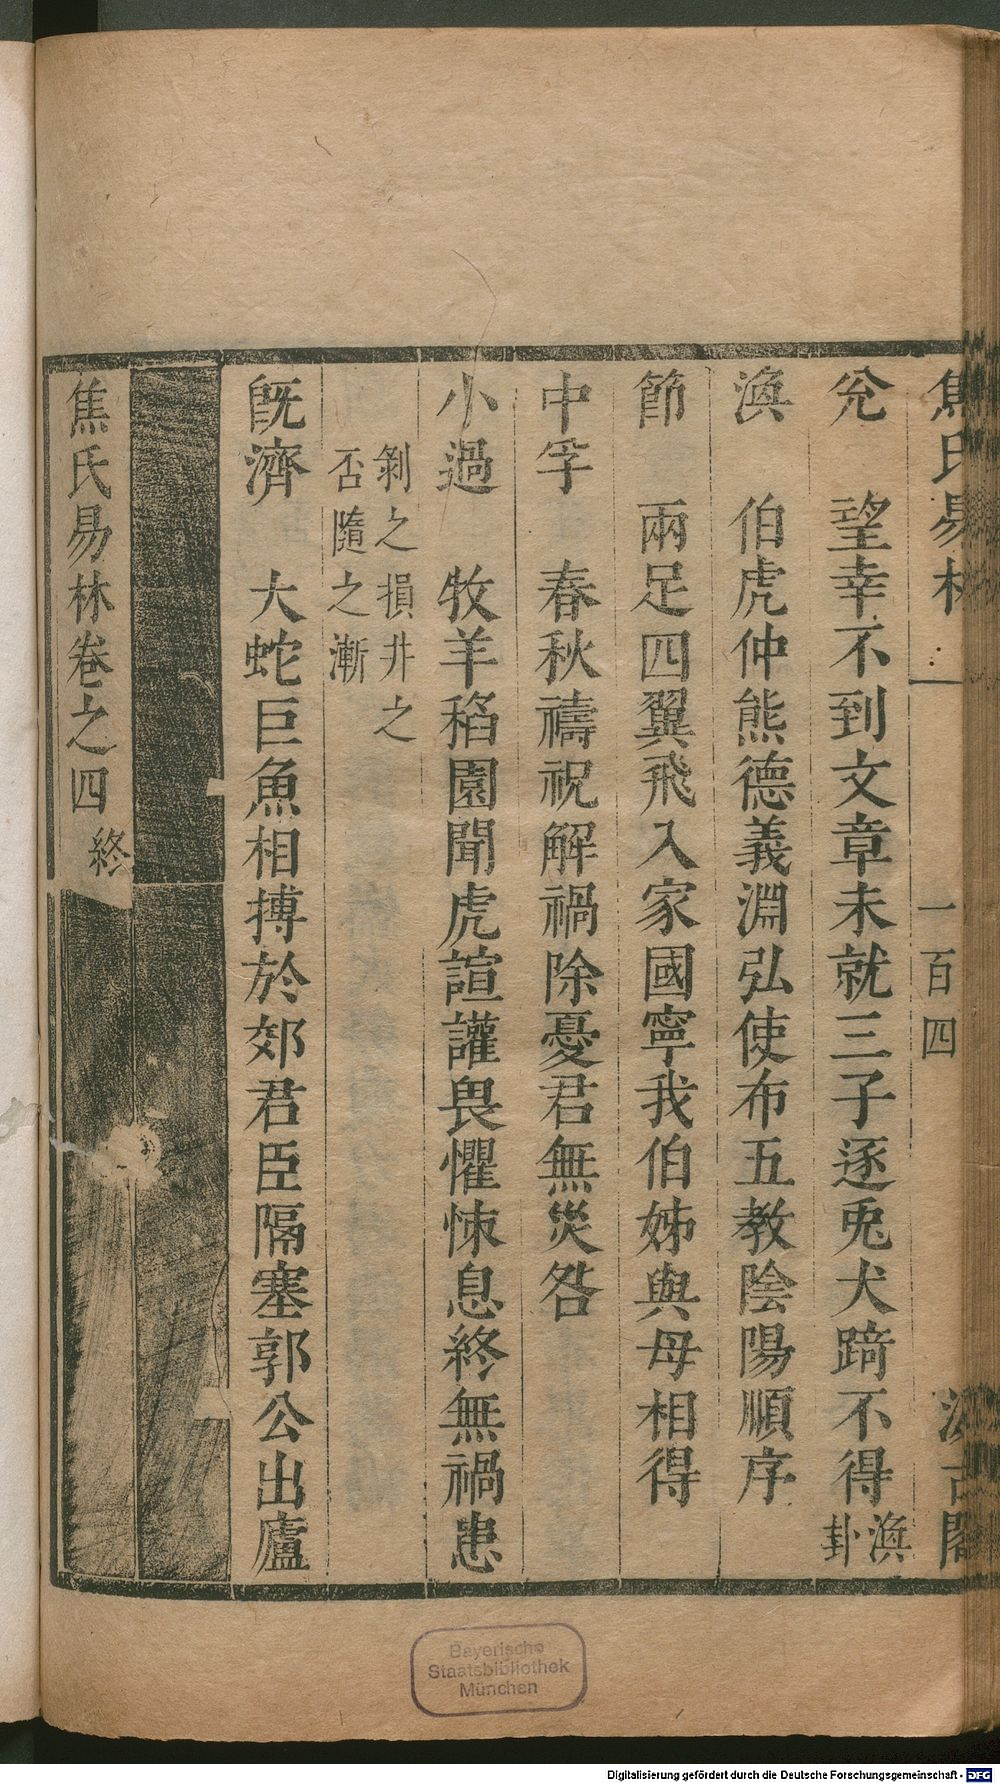 焦氏易林 一百四 汲古閣
兊 望幸不到文章未就三子逐兎犬踦不得渙卦
渙 伯虎仲熊德義淵弘使布五教陰陽順序
節 兩足四翼飛入家國寧我伯姊與母相得
中孚 春秋禱祝解禍除憂君無災咎
小過 牧羊稻園聞虎諠讙畏懼悚息終無禍患
剝之損井之
否隨之漸
旣濟 大蛇巨魚相搏於郊君臣隔塞郭公出廬
焦氏易林卷之四 終
Bayerische
Staatsbibliothek
München
Digitalisierung gefördert durch die Deutsche Forschungsgemeinschaft - DFG